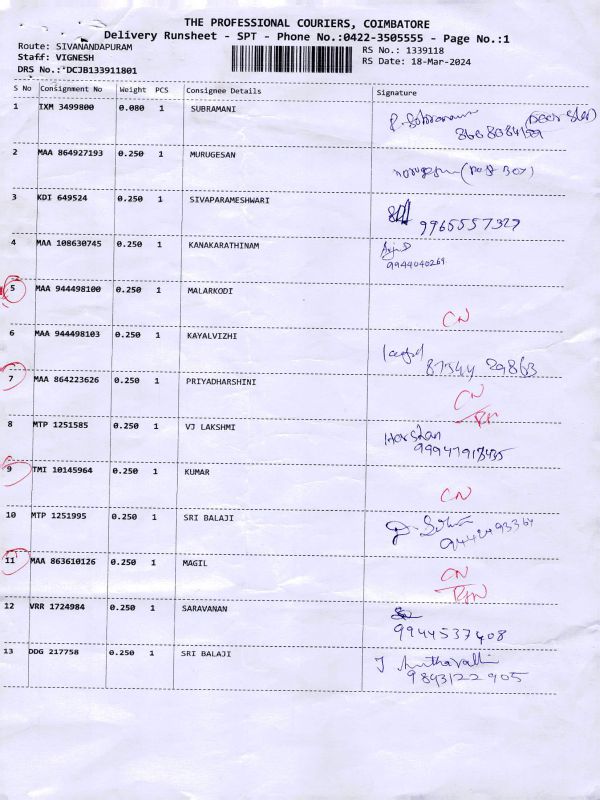 THE PROFESSIONAL COURIERS, COIMBATORE
Delivery Runsheet - SPT - Phone No.:0422-3505555 - Page No.:1
Route: SIVANANDAPURAM
RS No.: 1339118
Staff: VIGNESH
RS Date: 18-Mar-2024
DRS No.:*DCJB133911801
S No Consignment No Weight PCS Consignee Details Signature
1 IXM 3499800 0.080 1 SUBRAMANI
2 MAA 864927193 0.250 1 MURUGESAN
murugesan (Post Box)
3 KDI 649524 0.250 1 SIVAPARAMESHWARI
9965557327
4 MAA 108630745 0.250 1 KANAKARATHINAM
9944040269
5 MAA 944498100 0.250 1 MALARKODI
CN
6 MAA 944498103 0.250 1 KAYALVIZHI
87544 29863
7 MAA 864223626 0.250 1 PRIYADHARSHINI
CN
8 MTP 1251585 0.250 1 VJ LAKSHMI
Harshan
9 TMI 10145964 0.250 1 KUMAR
CN
10 MTP 1251995 0.250 1 SRI BALAJI
11 MAA 863610126 0.250 1 MAGIL
CN
12 VRR 1724984 0.250 1 SARAVANAN
9944537408
13 DDG 217758 0.250 1 SRI BALAJI
9843122905